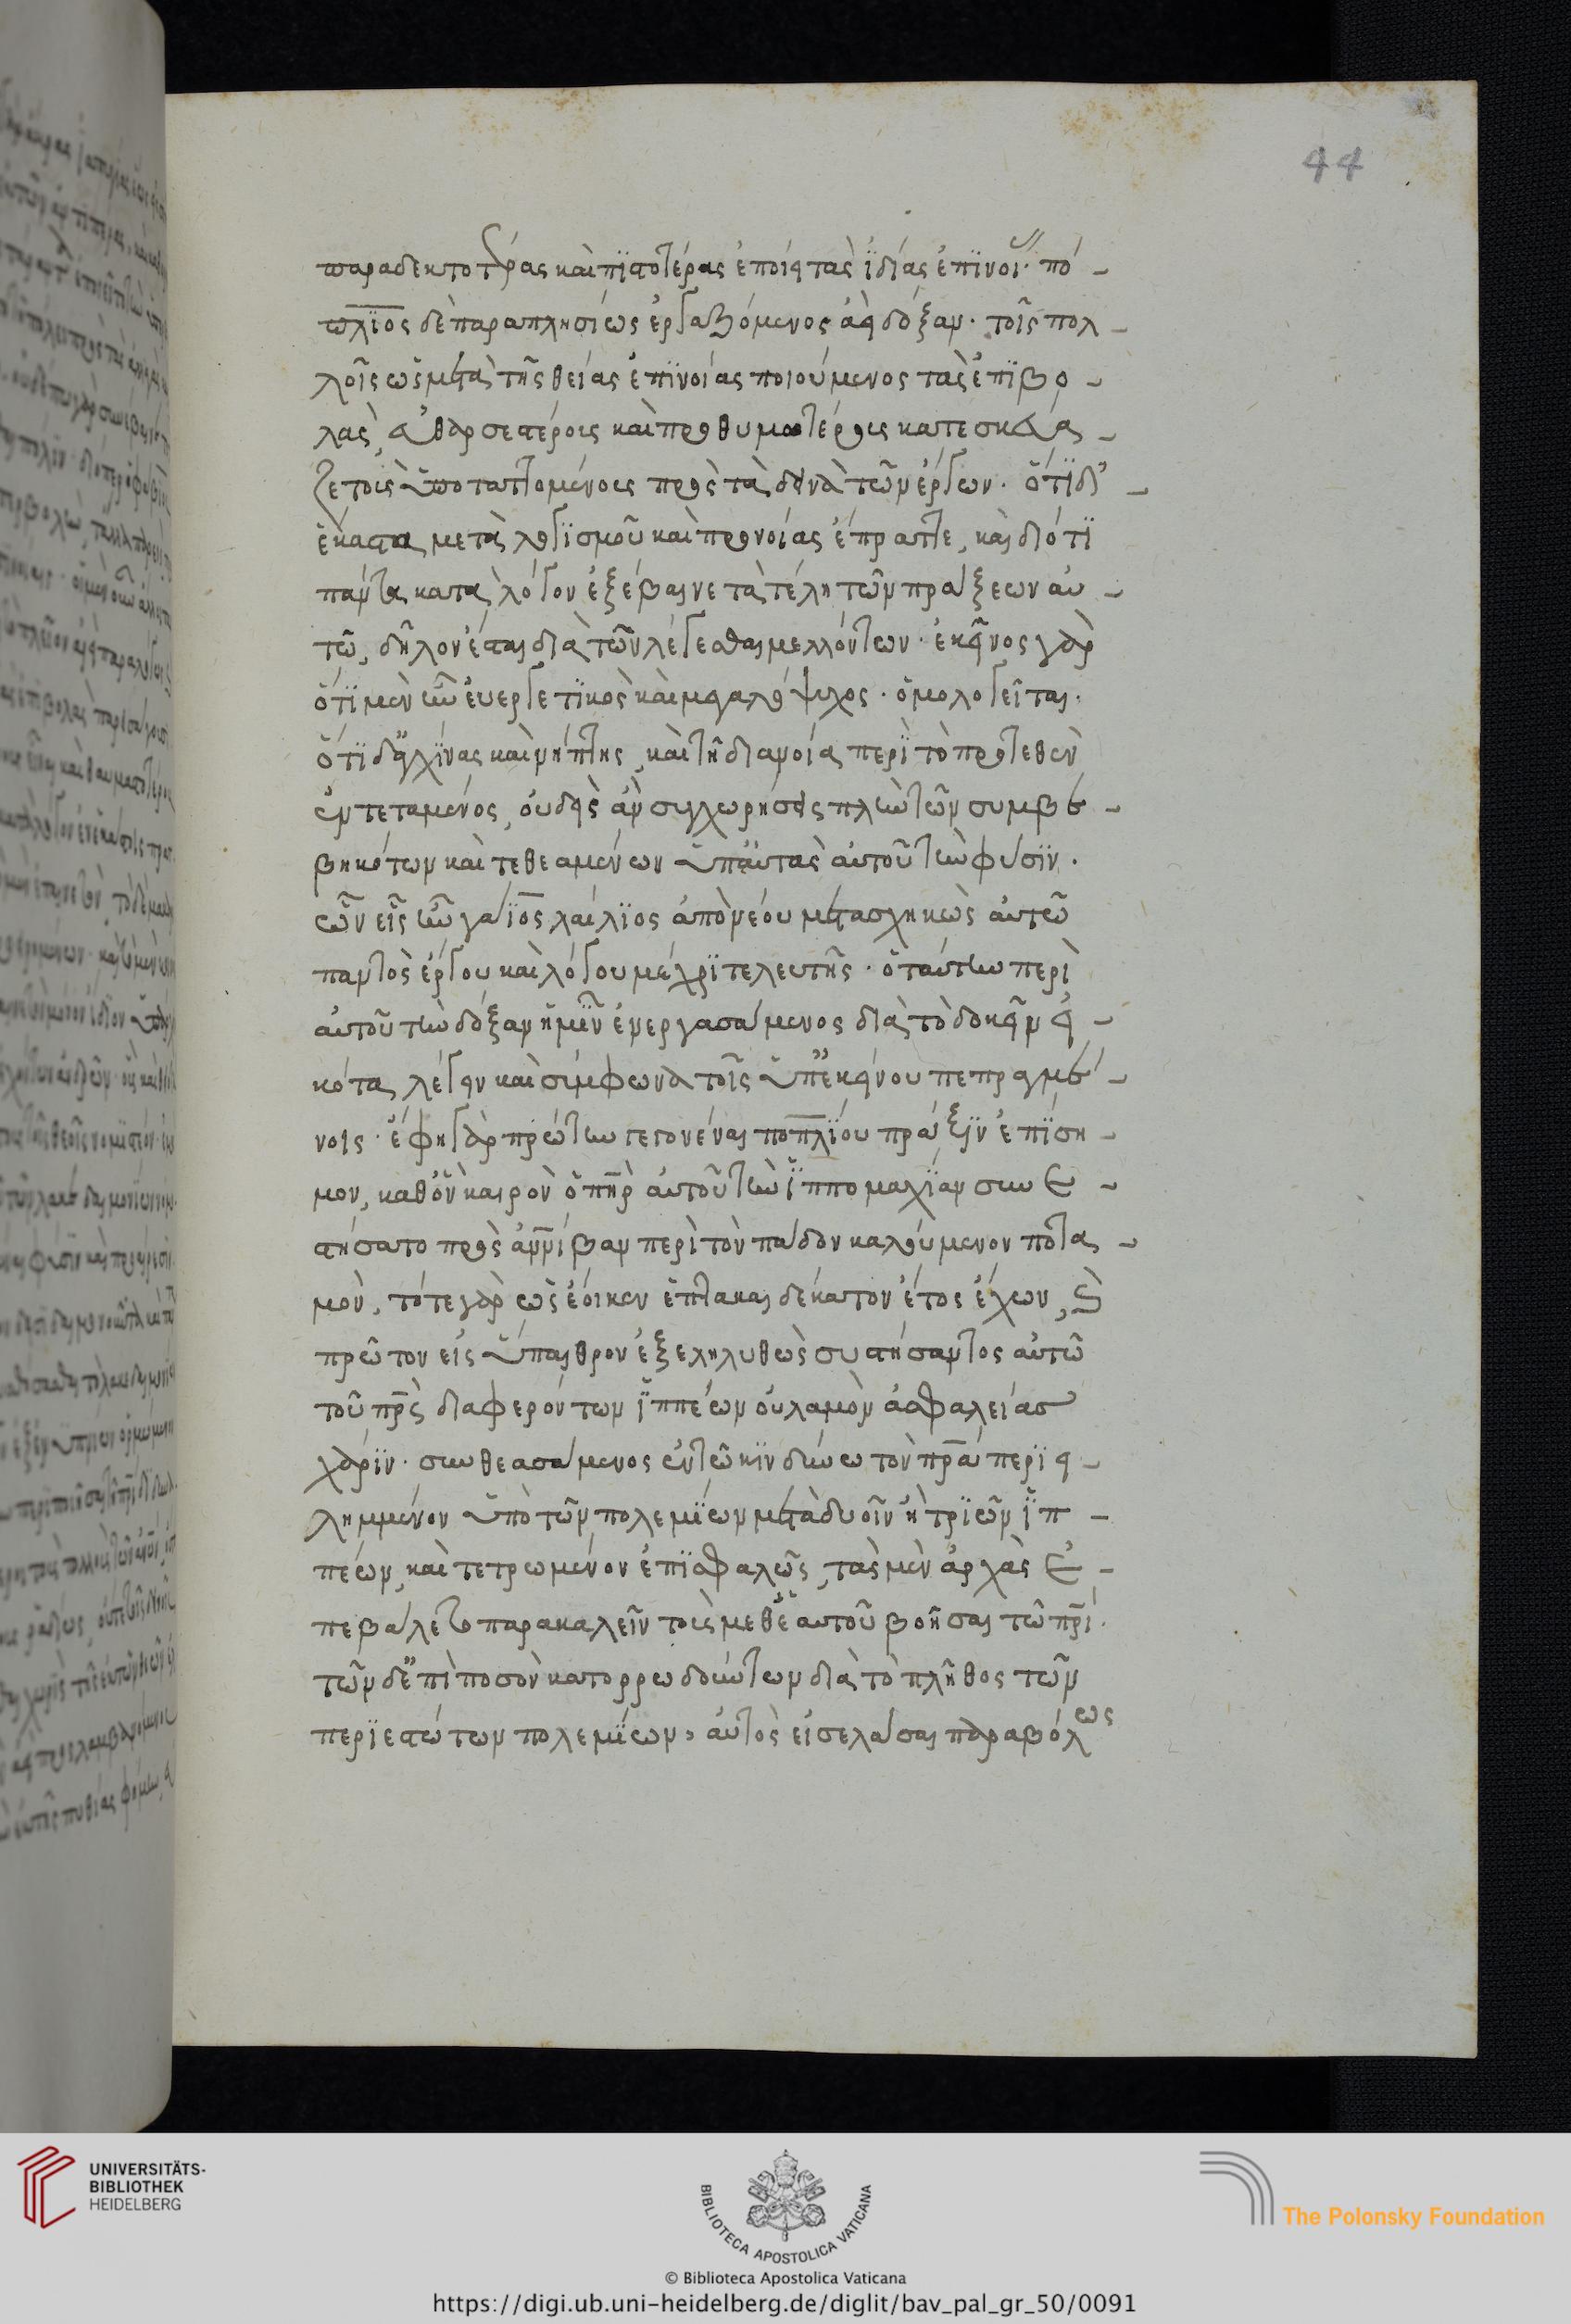 44
παραδεκτοτέρας καὶ πϊστοτέρας ἐποίει τὰς ἰδίας ἐπϊνοί(ας)· πό-
πλϊος δὲ παραπλησίως ἐργαζόμενος ἀεὶ δόξαν· τοῖς πολ-
λοῖς ὡς μετὰ τῆς θείας ἐπϊνοίας ποιούμενος τὰς ἐπϊβο-
λὰς, εὐθαρσεστέροις καὶ προθυμοτέροις κατεσκεύα-
ζε τοὺς ὑποταττομένους πρὸς τὰ δεινὰ τῶν ἔργων. ὅτϊ δ'
ἕκαστα μετὰ λογϊσμοῦ καὶ προνοίας ἔπραττε, καὶ διότϊ
πάντα κατὰ λόγον ἐξέβαινε τὰ τέλη τῶν πράξεων αὐ-
τῶ, δῆλον ἔσται διὰ τῶν λέγεσθαι μελλόντων· ἐκεῖνος γὰρ
ὅτϊ μὲν ἦν εὐεργετϊκὸς καὶ μεγαλόψυχος· ὁμολογεῖται·
ὅτϊ δ' ἀγχίνους καὶ νήπτης, καὶ τῆ διανοία περὶ τὸ προτεθὲν
ἐντεταμένος, οὐδεὶς ἂν συγχωρήσειε πλὴν τῶν συμβε-
βηκότων καὶ τεθεαμένων ὑπ' αὐτὰς αὐτοῦ τὴν φύσϊν·
ὧν εἷς ἦν γάϊος λαίλϊος ἀπὸ νέου μετασχηκὼς αὐτῶ
παντὸς ἔργου καὶ λόγου μέχρϊ τελευτῆς· ὁ ταύτην περὶ
αὐτοῦ τὴν δόξαν ἡμῖν ἐνεργασάμενος διὰ τὸ δοκεῖν εἰ-
κότα λέγειν καὶ σύμφωνα τοῖς ὑπ' ἐκείνου πεπραγμέ-
νοις· ἔφη γὰρ πρώτην γεγονέναι ποπλΐου πρᾶξϊν ἐπίση-
μον, καθ' ὃν καιρὸν ὁ πὴρ αὐτοῦ τὴν ἱππομαχΐαν συνε-
στήσατο πρὸς ἀννίβαν περὶ τὸν πάδον καλούμενον ποτα-
μόν. τότε γὰρ ὡς ἔοικεν ἑπτακαιδέκατον ἔτος ἔχων, καὶ
πρῶτον εἰς ὕπαιθρον ἐξεληλυθὼς συστήσαντος αὐτῶ
τοῦ πρς διαφερόντων ἱππέων οὐλαμὸν ἀσφαλείας
χάρϊν· συνθεασάμενος ἐν τῶ κϊνδύνω τὸν πρα περϊει-
λημμένον ὑπὸ τῶν πολεμΐων μετὰ δυοῖν ἢ τρϊῶν ἱπ-
πέων, καὶ τετρωμένον ἐπϊσφαλῶς, τὰς μὲν ἀρχὰς ἐ-
πεβάλετο παρακαλεῖν τοὺς μεθ' ἑαυτοῦ βοῆσαι τῶ πρι·
τῶν δ' ἐπὶ ποσὸν κατορρωδούντων διὰ τὸ πλῆθος τῶν
περϊεστώτων πολεμΐων, αὐτὸς εἰσελάσαι παραβόλως
UNIVERSITÄTS-
BIBLIOTHEK
HEIDELBERG
BIBLIOTECA APOSTOLICA VATICANA
The Polonsky Foundation
© Biblioteca Apostolica Vaticana
https://digi.ub.uni-heidelberg.de/diglit/bav_pal_gr_50/0091